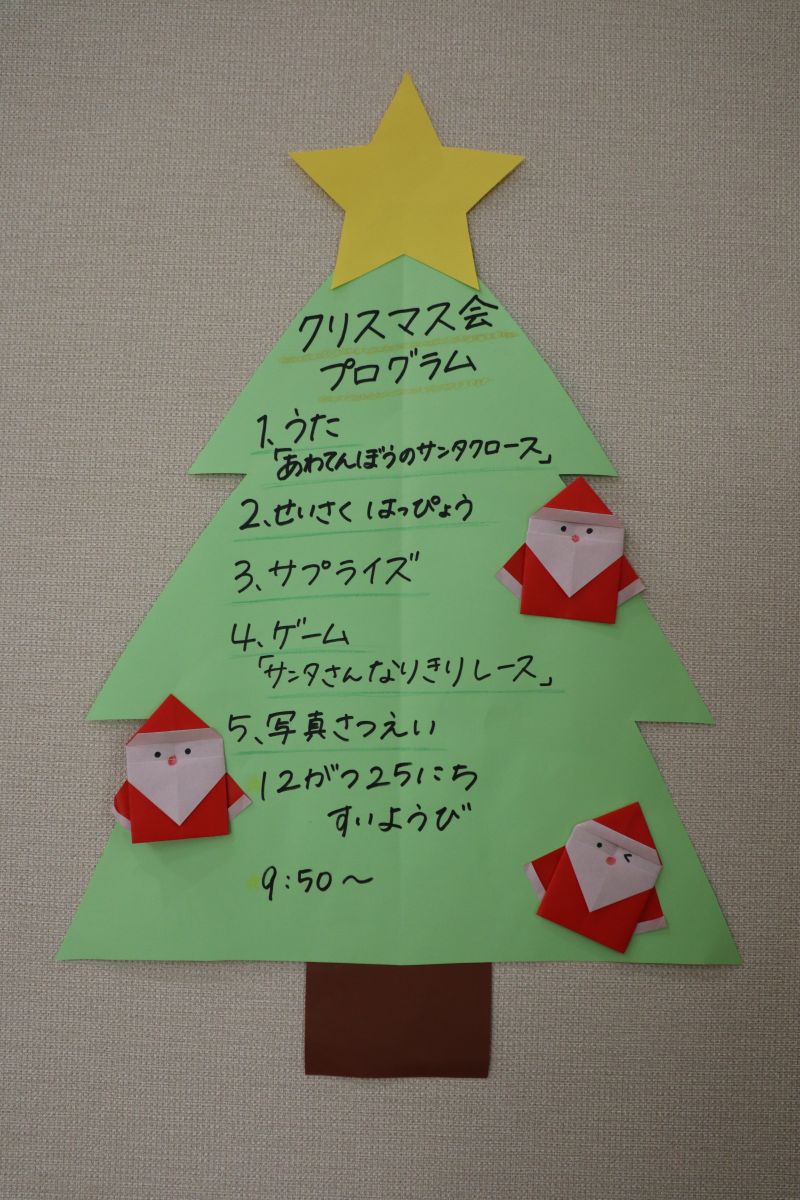 クリスマス会
プログラム
1、うた
「あわてんぼうのサンタクロース」
2、せいさく はっぴょう
3、サプライズ
4、ゲーム
「サンタさんなりきりレース」
5、写真さつえい
12がつ25にち
すいようび
9:50～